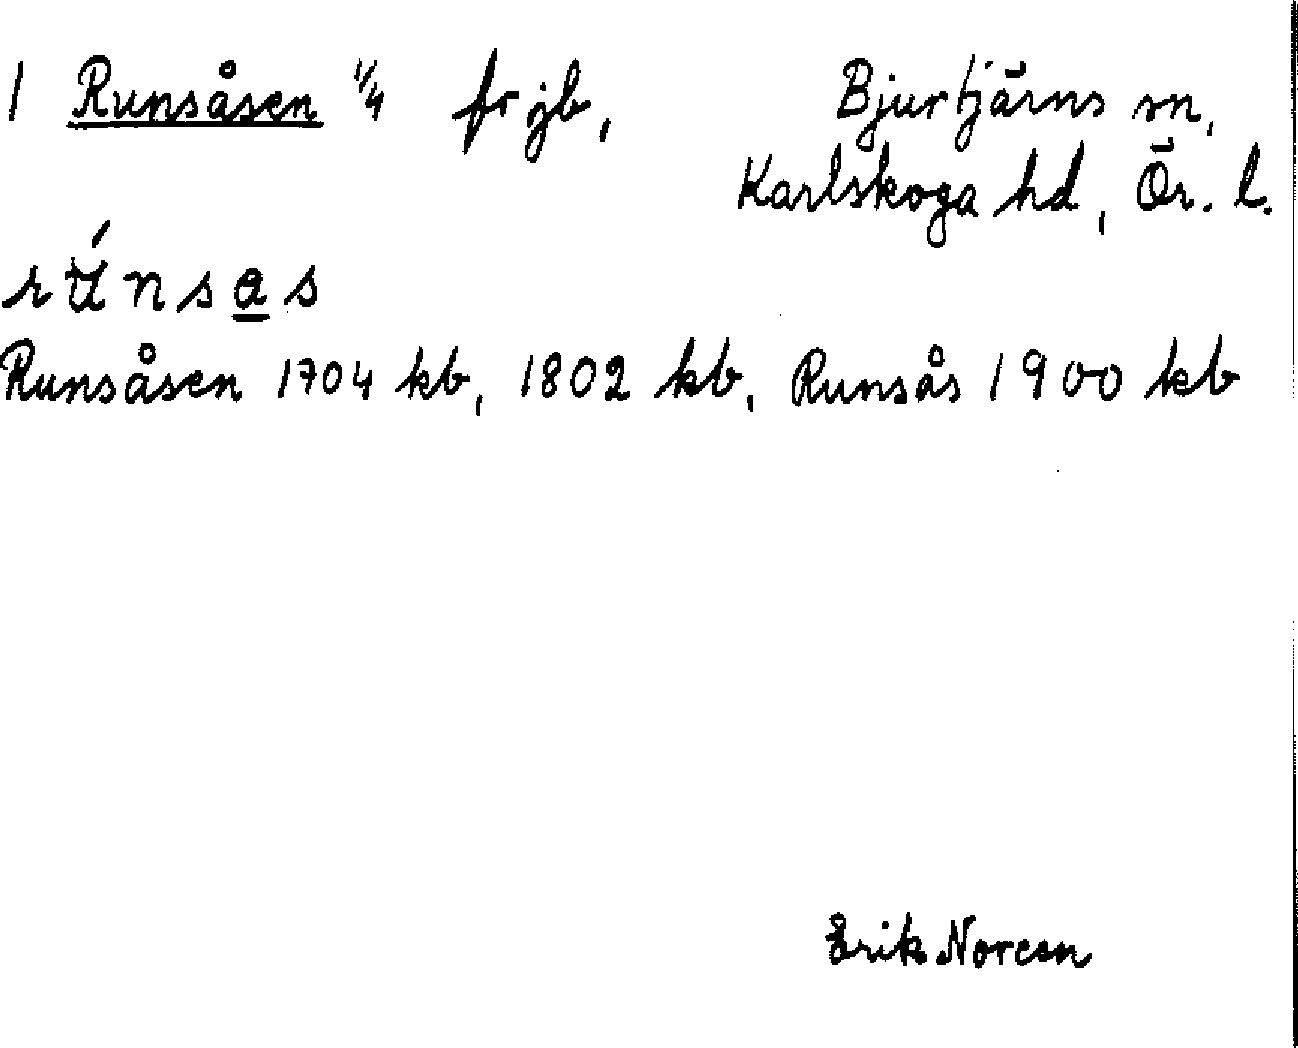 1 Runsåsen 1/4 fr jb, Bjurtjärns sn,
Karlskoga hd, Ör. l.
rú̶nsas
Runsåsen 1704 kb, 1802 kb, Runsås 1900 kb
Erik Noreen